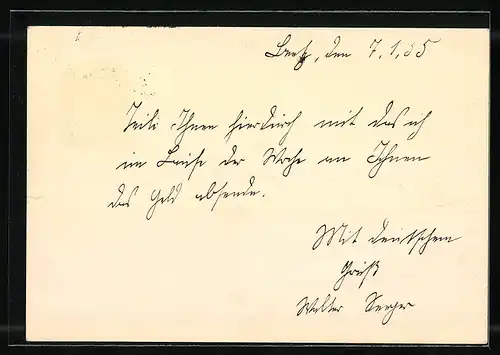 den 7.1.35
Teile Ihnen hierdurch mit das ich
im Laufe der Woche an Ihnen
das Geld absende.
Mit deutschem
Gruß
Walter